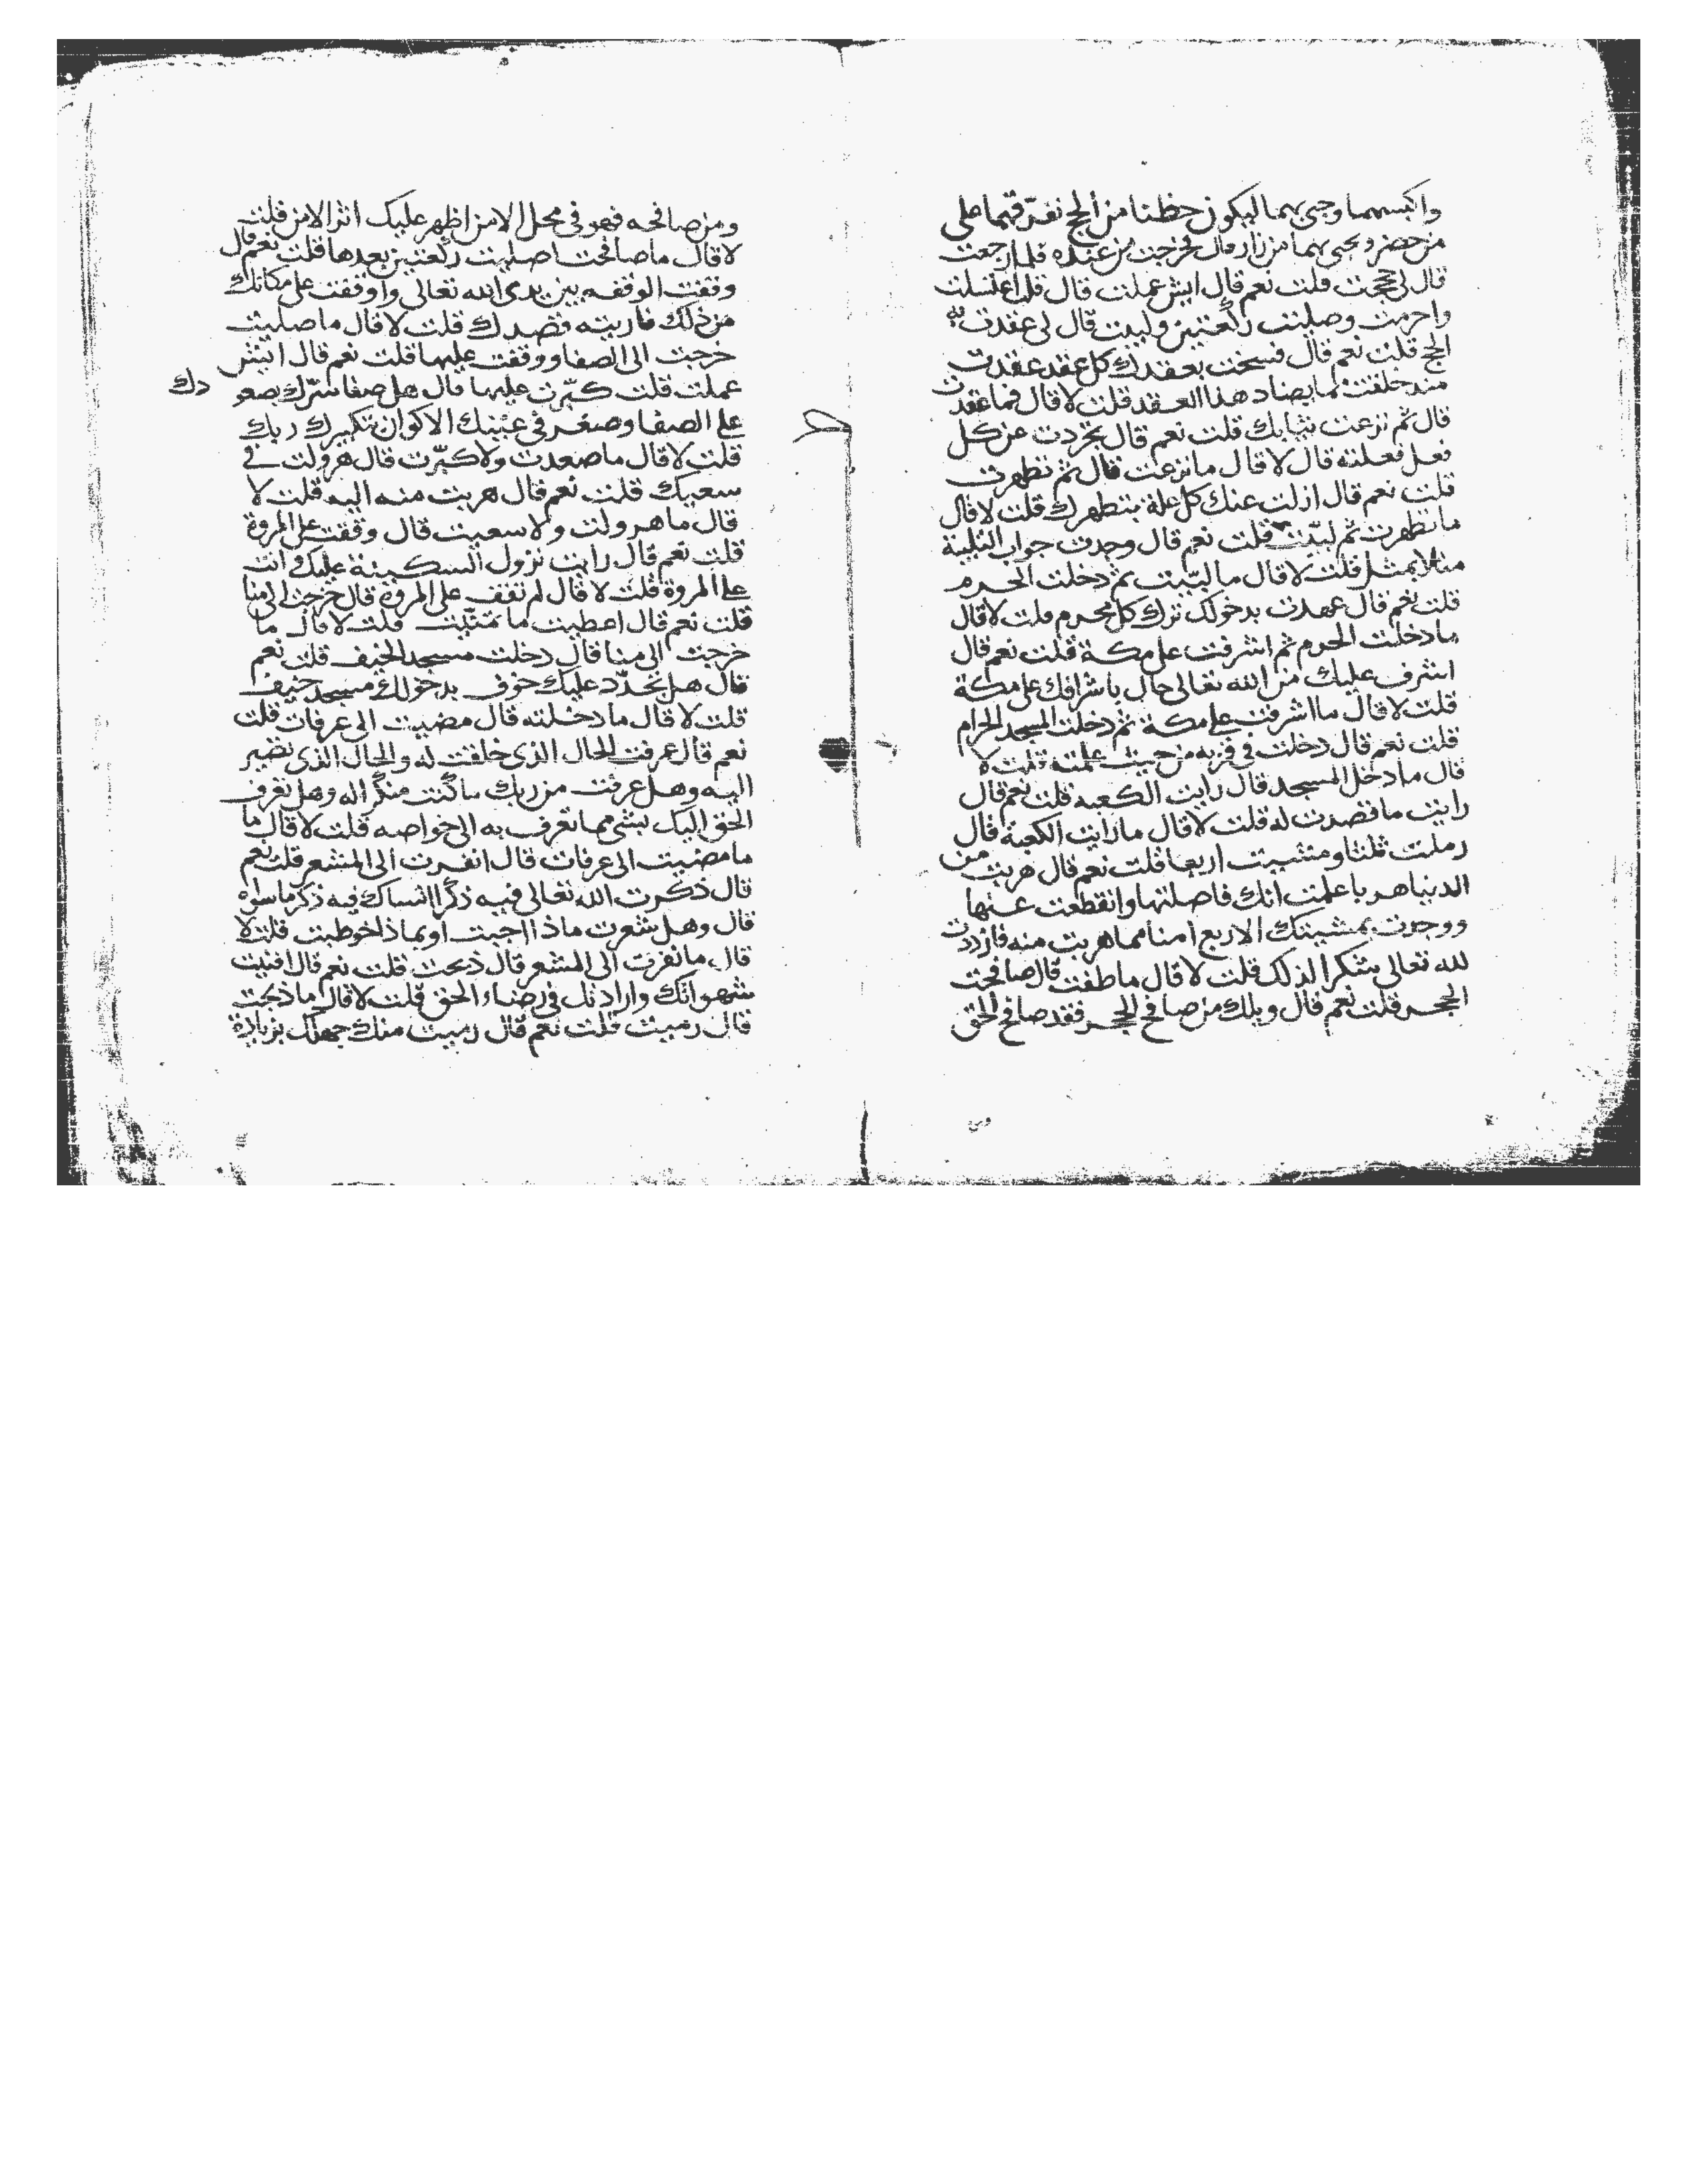 واكبسهما وجئ بهما ليكون حظنا من الحج نفرّقهما على
من حضر ونحيى بهما من زار وقال فخرجت من عنده فلما رجعت
قال لى حججت قلت نعم قال ايش عملت قال قلت اغتسلت
واحرمت وصليت ركعتين ولبيت قال لى عقدت به
الحج قلت نعم قال فسخت بعقدك كل عقد عقدت
منذ خلقت مما يضاد هذا العقد قلت لا قال فما عقدت
قال ثم نزعت ثيابك قلت نعم قال تجردت عن كل
فعل فعلته قال لا قال ما نزعت قال ثم تطهرت
قلت نعم قال ازلت عنك كل علة بتطهرك قلت لا قال
ما تطهرت ثم لبّيت قلت نعم قال وجدت جواب التلبية
مثلا بمثل قلت لا قال ما لبّيت ثم دخلت الحرم
قلت نعم قال عهدت بدخولك ترك كل محرم قلت لا قال
ما دخلت الحرم ثم اشرفت على مكة قلت نعم قال
اشرف عليك من الله تعالى حال باشرافك على مكة
قلت لا قال ما اشرفت على مكة ثم دخلت المسجد الحرام
قلت نعم قال دخلت في قربه من حيث علمته قلت لا
قال ما دخل المسجد قال رايت الكعبه قلت نعم قال
رايت ما قصدت له قلت لا قال ما رايت الكعبة قال
رملت ثلثا ومشيت اربعا قلت نعم قال هربت من
الدنيا هربا علمت انك فاصلتها وانقطعت عنها
ووجدت بمشيتك الاربع امنا مما هربت منه فازددت
لله تعالى شكرا لذلك قلت لا قال ما طفت قال صافحت
الحجر قلت نعم قال ويلك من صافح الحجر فقد صافح الحق
ومن صافحه فهو في محل الامن اظهر عليك اثر الامن قلت
لا قال ما صافحت اصليت ركعتين بعدها قلت نعم قال
وقفت الوقفه بين يدى الله تعالى واوقفت على مكانك
من ذلك فاريته قصدك قلت لا قال ما صليت
خرجت الى الصفا ووقفت عليها قلت نعم قال ايش
عملت قلت كبّرت عليها قال هل صفا سرّك بصعو
دك
على الصفا وصغر في عينيك الاكوان تكبيرك ربك
قلت لا قال ما صعدت ولا كبّرت قال هرولت في
سعيك قلت نعم قال هربت منه اليه قلت لا
قال ما هرولت ولا سعيت قال وقفت على المروة
قلت نعم قال رايت نزول السكينة عليك وانت
على المروة قلت لا قال لم تقف على المروة قال خرجت الى منا
قلت نعم قال اعطيت ما تمنّيت قلت لا قال ما
خرجت الى منا قال دخلت مسجد الخيف قلت نعم
قال هل تجدّد عليك خوف بدخولك مسجد خيف
قلت لا قال ما دخلته قال مضيت الى عرفات قلت
نعم قال عرفت الحال الذى خلقت له والحال الذى تصير
اليه وهل عرفت من ربك ما كنت منكرا له وهل تعرف
الحق اليك بشى مما تعرف به الى خواصه قلت لا قال ما
ما مضيت الى عرفات قال انفرت الى المشعر قلت نعم
قال ذكرت الله تعالى فيه ذكرا انساك فيه ذكر ما سواه
قال وهل شعرت ماذا اجبت او بماذا خوطبت قلت لا
قال ما نفرت الى المشعر قال ذبحت قلت نعم قال افنيت
شهواتك وارادتك في رضاء الحق قلت لا قال ما ذبحت
قال رميت قلت نعم قال رميت منك جهلك بزيادة